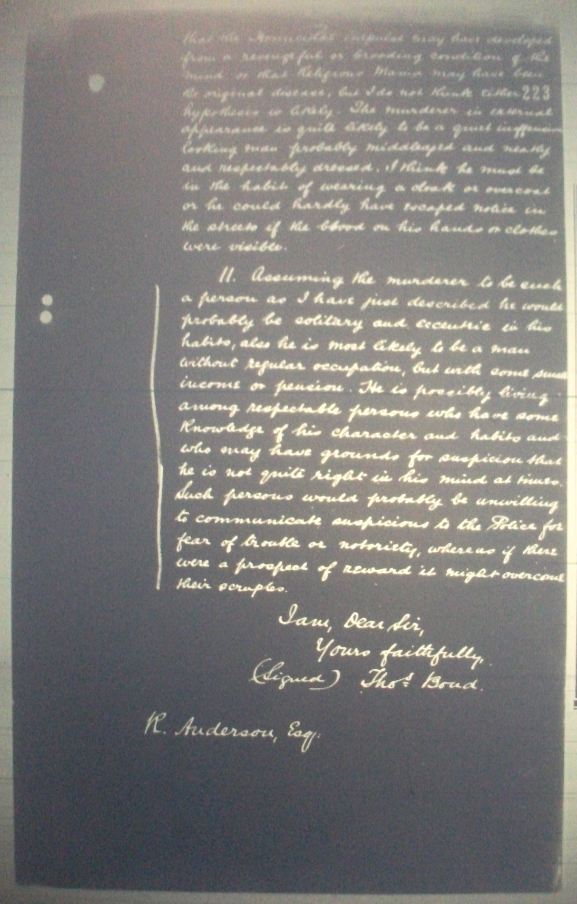 that the Homicidal impulse may have developed
from a revengeful or brooding condition of the
mind or that Religious Mania may have been
the original disease, but I do not think either 223
hypothesis is likely. The murderer in external
appearance is quite likely to be a quiet inoffensive
looking man probably middleaged and neatly
and respectably dressed. I think he must be
in the habit of wearing a cloak or overcoat
or he could hardly have escaped notice in
the streets if the blood on his hands or clothes
were visible.
11. Assuming the murderer to be such
a person as I have just described he would
probably be solitary and eccentric in his
habits, also he is most likely to be a man
without regular occupation, but with some small
income or pension. He is possibly living
among respectable persons who have some
Knowledge of his character and habits and
who may have grounds for suspicion that
he is not quite right in his mind at times.
Such persons would probably be unwilling
to communicate suspicions to the Police for
fear of trouble or notoriety, whereas if there
were a prospect of reward it might overcome
their scruples.
I am, Dear Sir,
Yours faithfully,
(Signed) Thos. Bond.
R. Anderson, Esq.